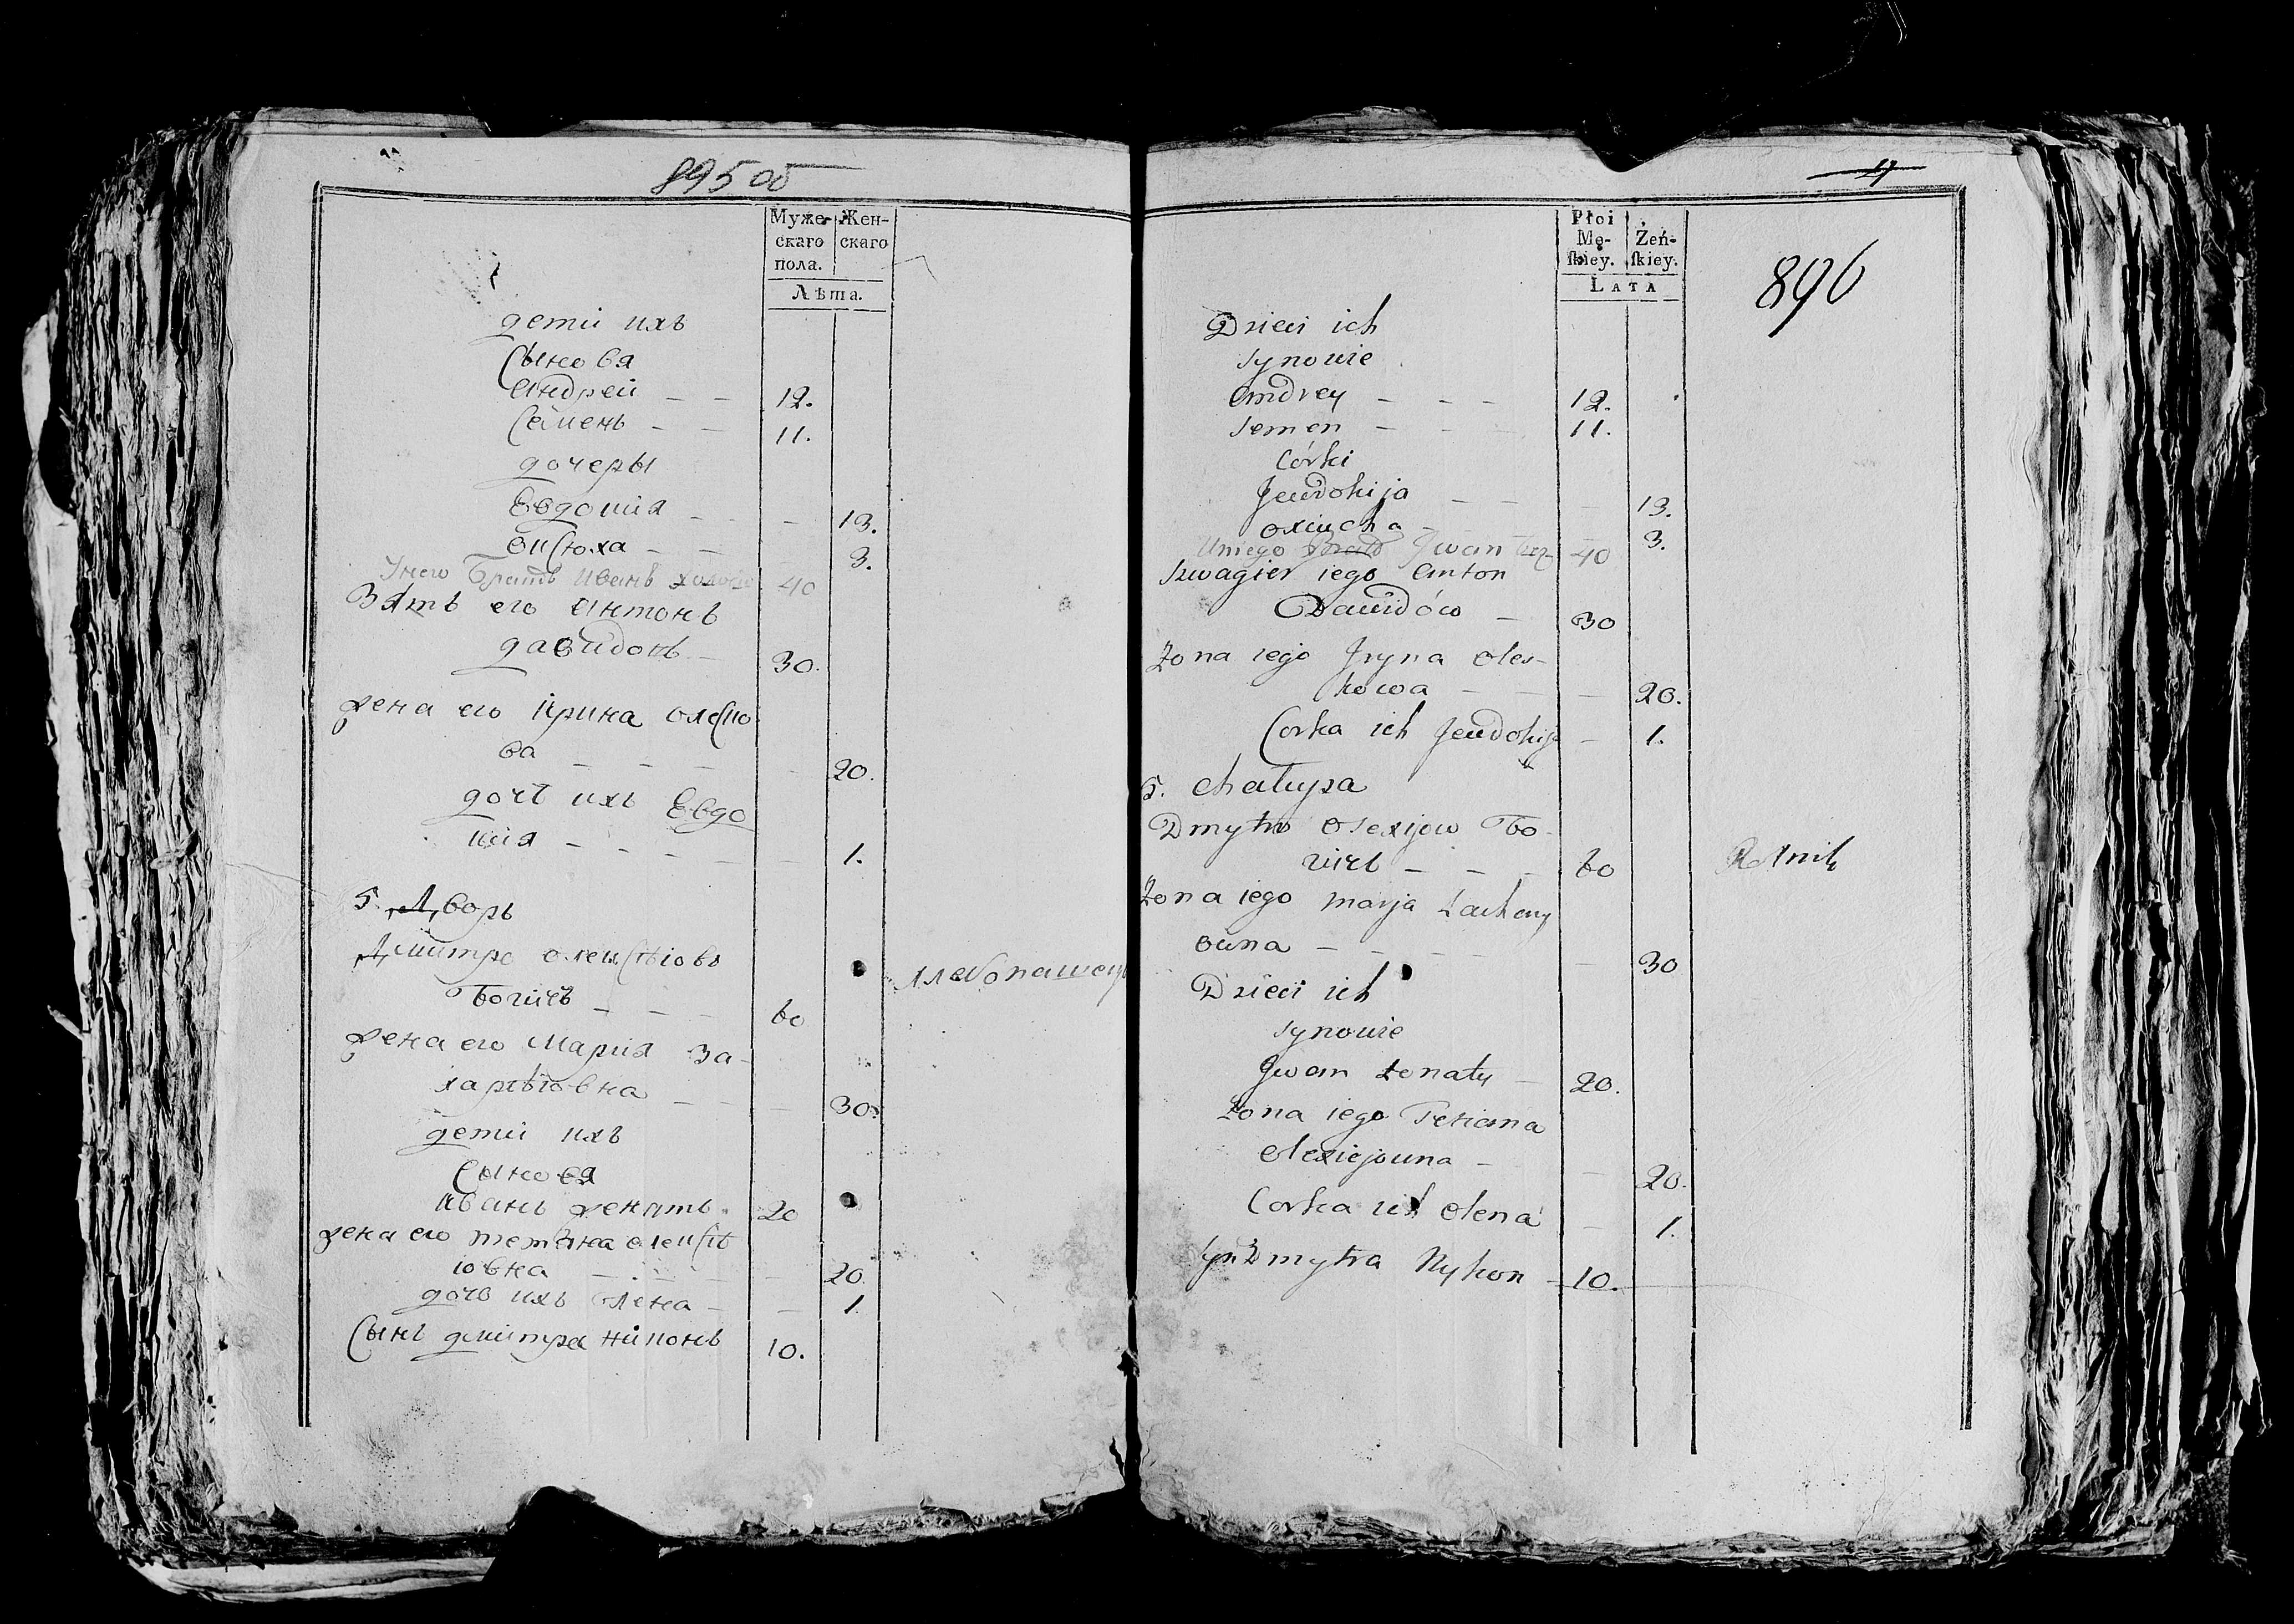 895 об
Муже-
скаго
пола.
Жен-
скаго
Лѣта.
дети ихъ
Сыновя
Андрей — — 12.
Семенъ — — 11.
дочеры
Евдокия — — 13.
3.
Унего Братъ Иванъ 40
Зять его Антонъ
давидовъ — 30.
жена его Ирина олеско
ва — — — 20.
дочъ ихъ Евдо
кия — — — — 1.
5. Дворъ
Дмитро олексѣiовъ
— — 60
хлебопашецъ
жена его Мария За-
харѣювна — — — 30.
дети ихъ
Сыновя
иванъ женатъ. 20
жена его тетяна олексѣ
ювна — — — 20.
дочь ихъ Олена — — 1.
Сынъ дмитра никонъ 10.
17
Płci
Mę-
skiey.
Żeń-
skiey.
LATA
896
Dzieci ich
synowie
Andrey — — — 12.
Semen — — — 11.
Córki
Jewdokija — — — 13.
Oxiucha — 3.
Uniego Brat Iwan 40
Szwagier iego Anton
Dawidów — 30
Żona iego Iryna Oles-
kowa — — — 20.
Corka ich Jewdokija — 1.
5. Chałupa
Dmytro Olexijow Bo-
— — — 60
Rolnik
Żona iego Marja Zachary
owna — — — — — 30
Dzieci ich
synowie
Iwan żonaty — 20.
Żona iego Teтiana
Olexiejowna — — 20.
Corka ich Olena — 1.
Syn Dmytra Nykon — 10.